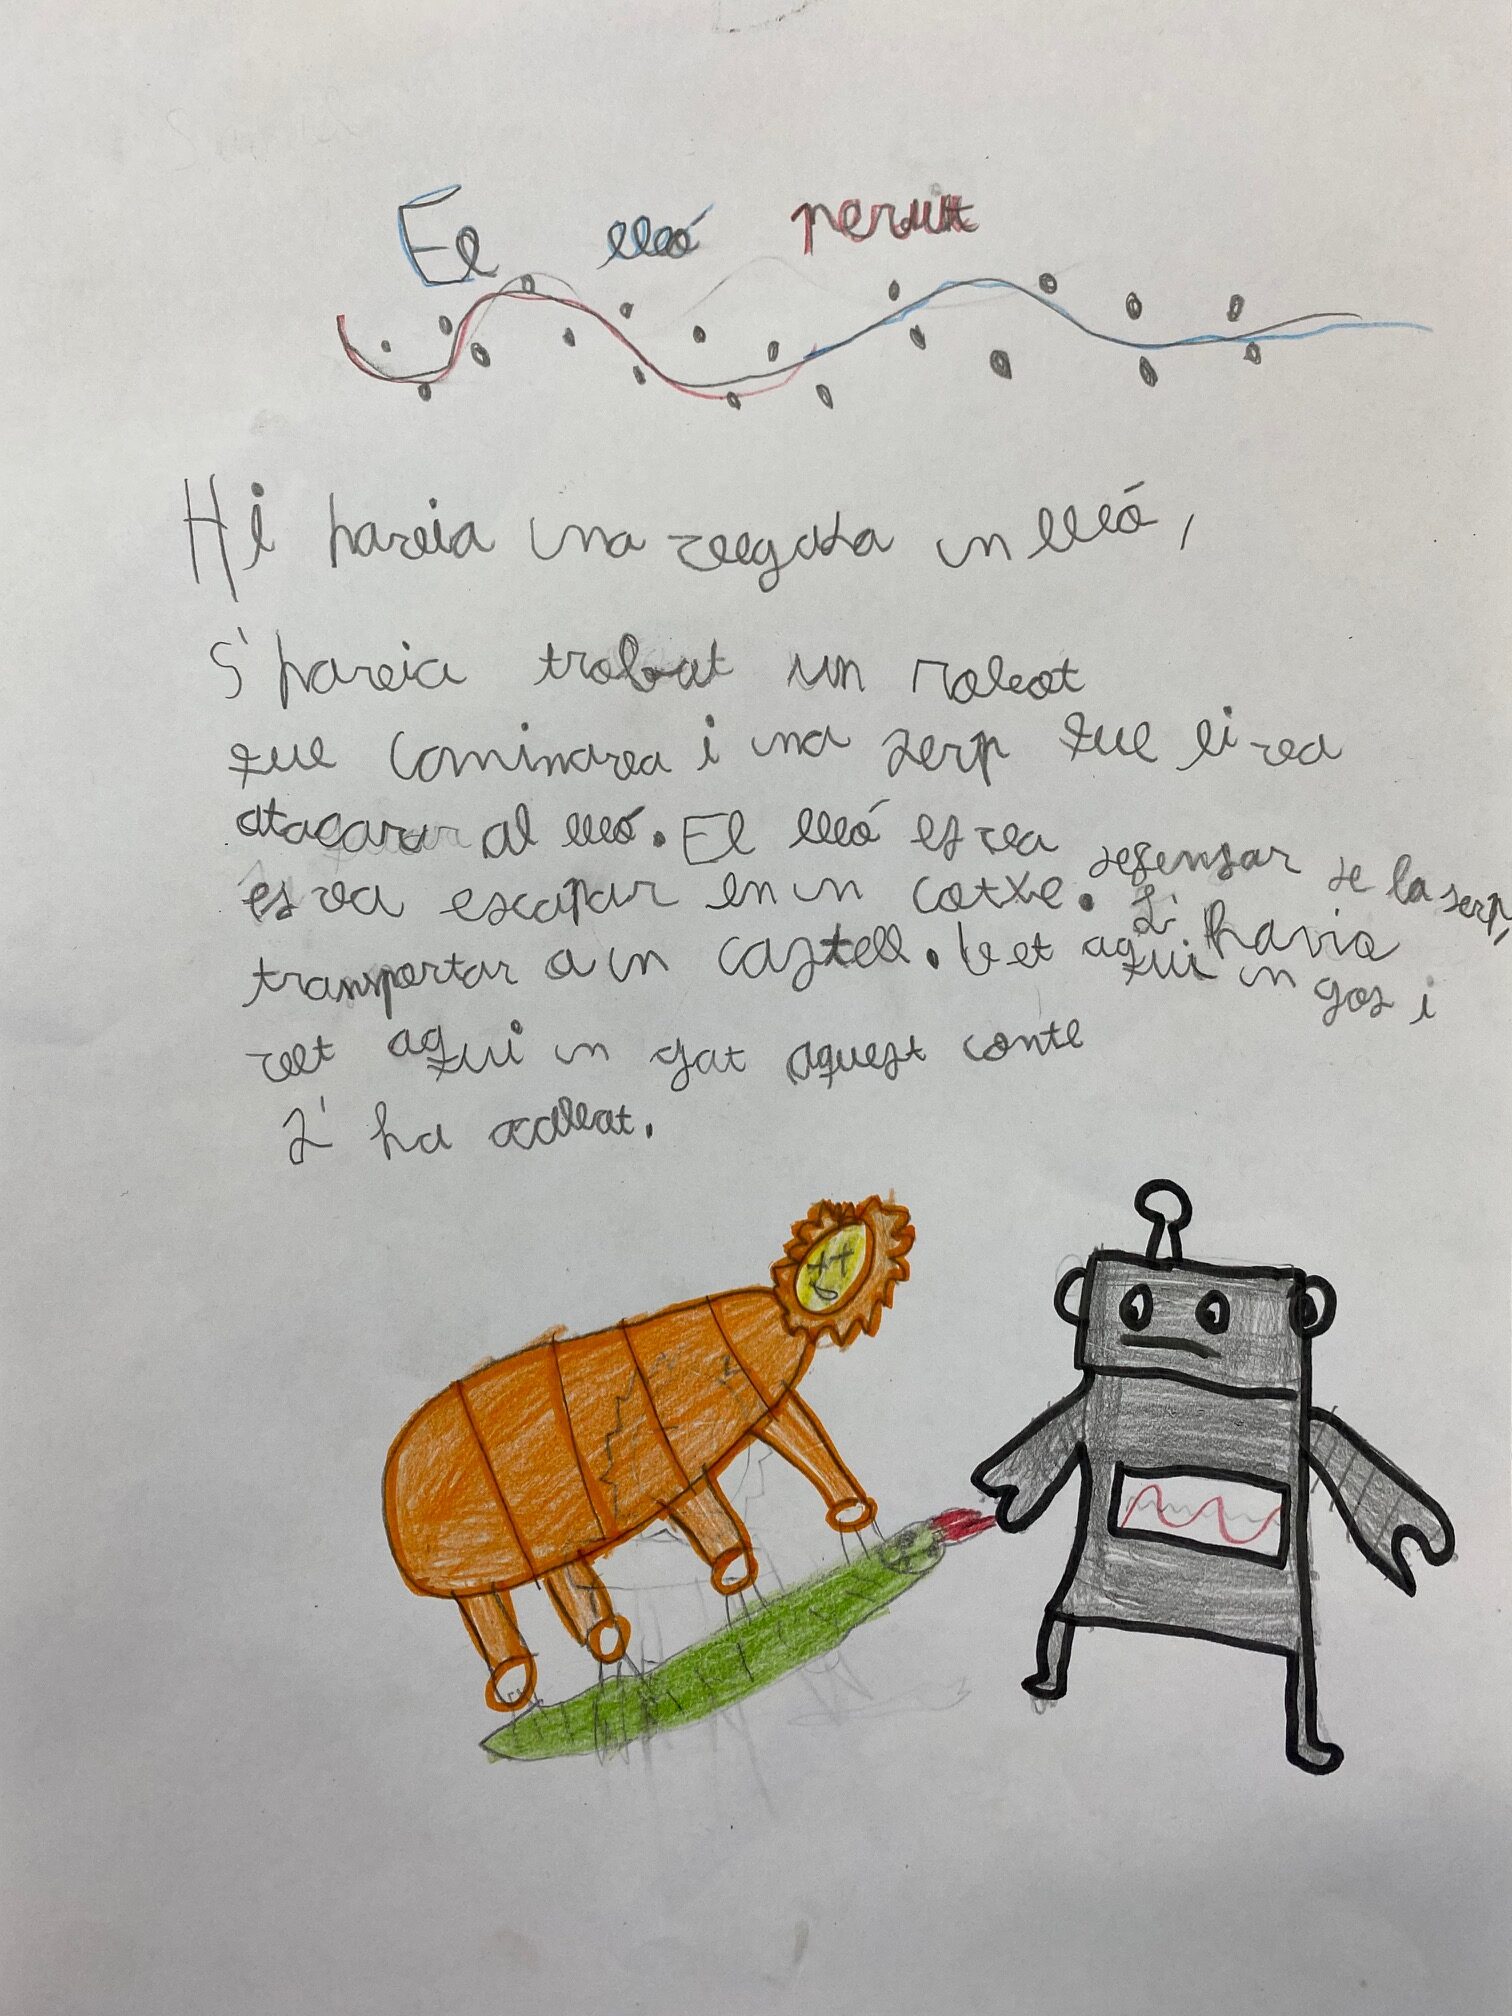 El lleó perdut
Hi havia una vegada un lleó,
s'havia trobat un robot
que caminava i una serp que li va
atacar al lleó. El lleó es va defensar de la serp,
es va escapar en un cotxe. S'havia
transportar a un castell. Vet aquí un gos i
vet aquí un gat aquest conte
s'ha acabat.